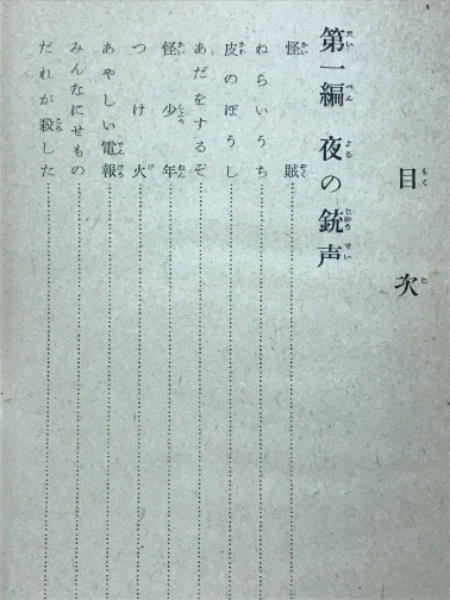 目次
第一編 夜の銃声
怪賊
ねらいうち
皮のぼうし
あだをするぞ
怪少年
つけ火
あやしい電報
みんなにせもの
だれが殺した